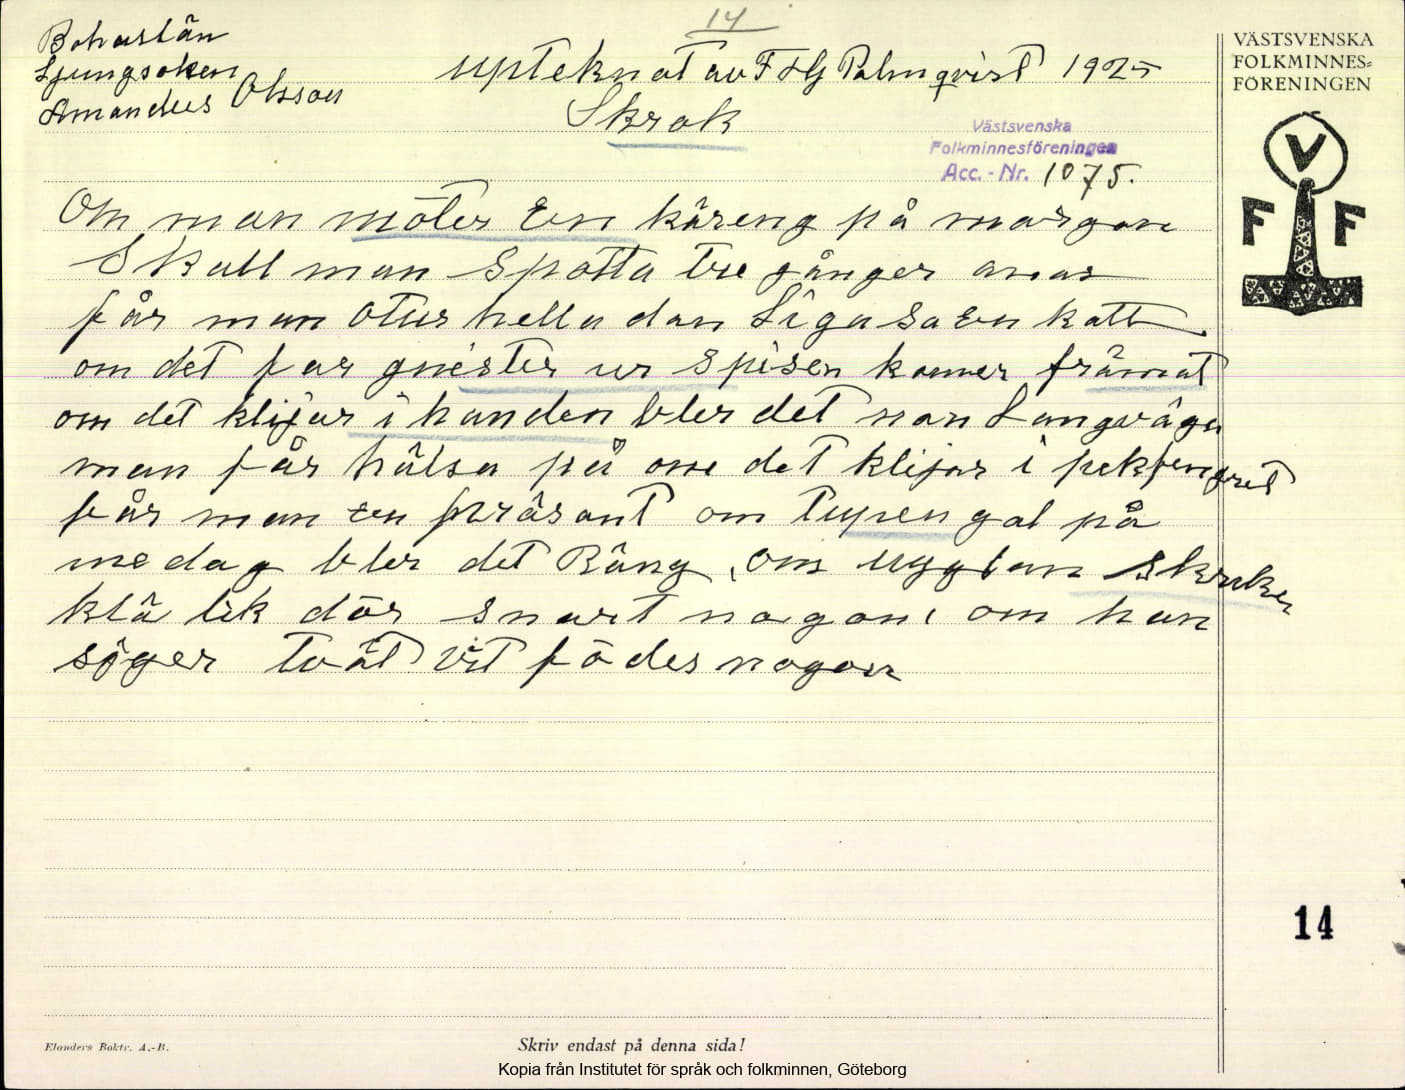 14
Bohuslän
Ljungsoken
Amandus Olsson
upteknat av F HG Palmqvist 1925
Skrok
VÄSTSVENSKA
FOLKMINNES=
FÖRENINGEN
Västsvenska
Folkminnesföreningen
Acc.-Nr. 1075.
V
F F
Om man möter En käreng på margon
Skall man Spotta tre gånger anars
får man Otur hella dan Liga sa En katt
om det far gnister ur spisen komer främat
om det klijar i handen bler det non Langväga
man får hälsa på om det klijar i pekfengret
får man en präsant om tupen gal på
medag bler det Räng, om ugglan skriker
klä lik dör snart nagon, om han
säger tvät vit födes nagon
14
Elanders Boktr. A.-B.
Skriv endast på denna sida!
Kopia från Institutet för språk och folkminnen, Göteborg